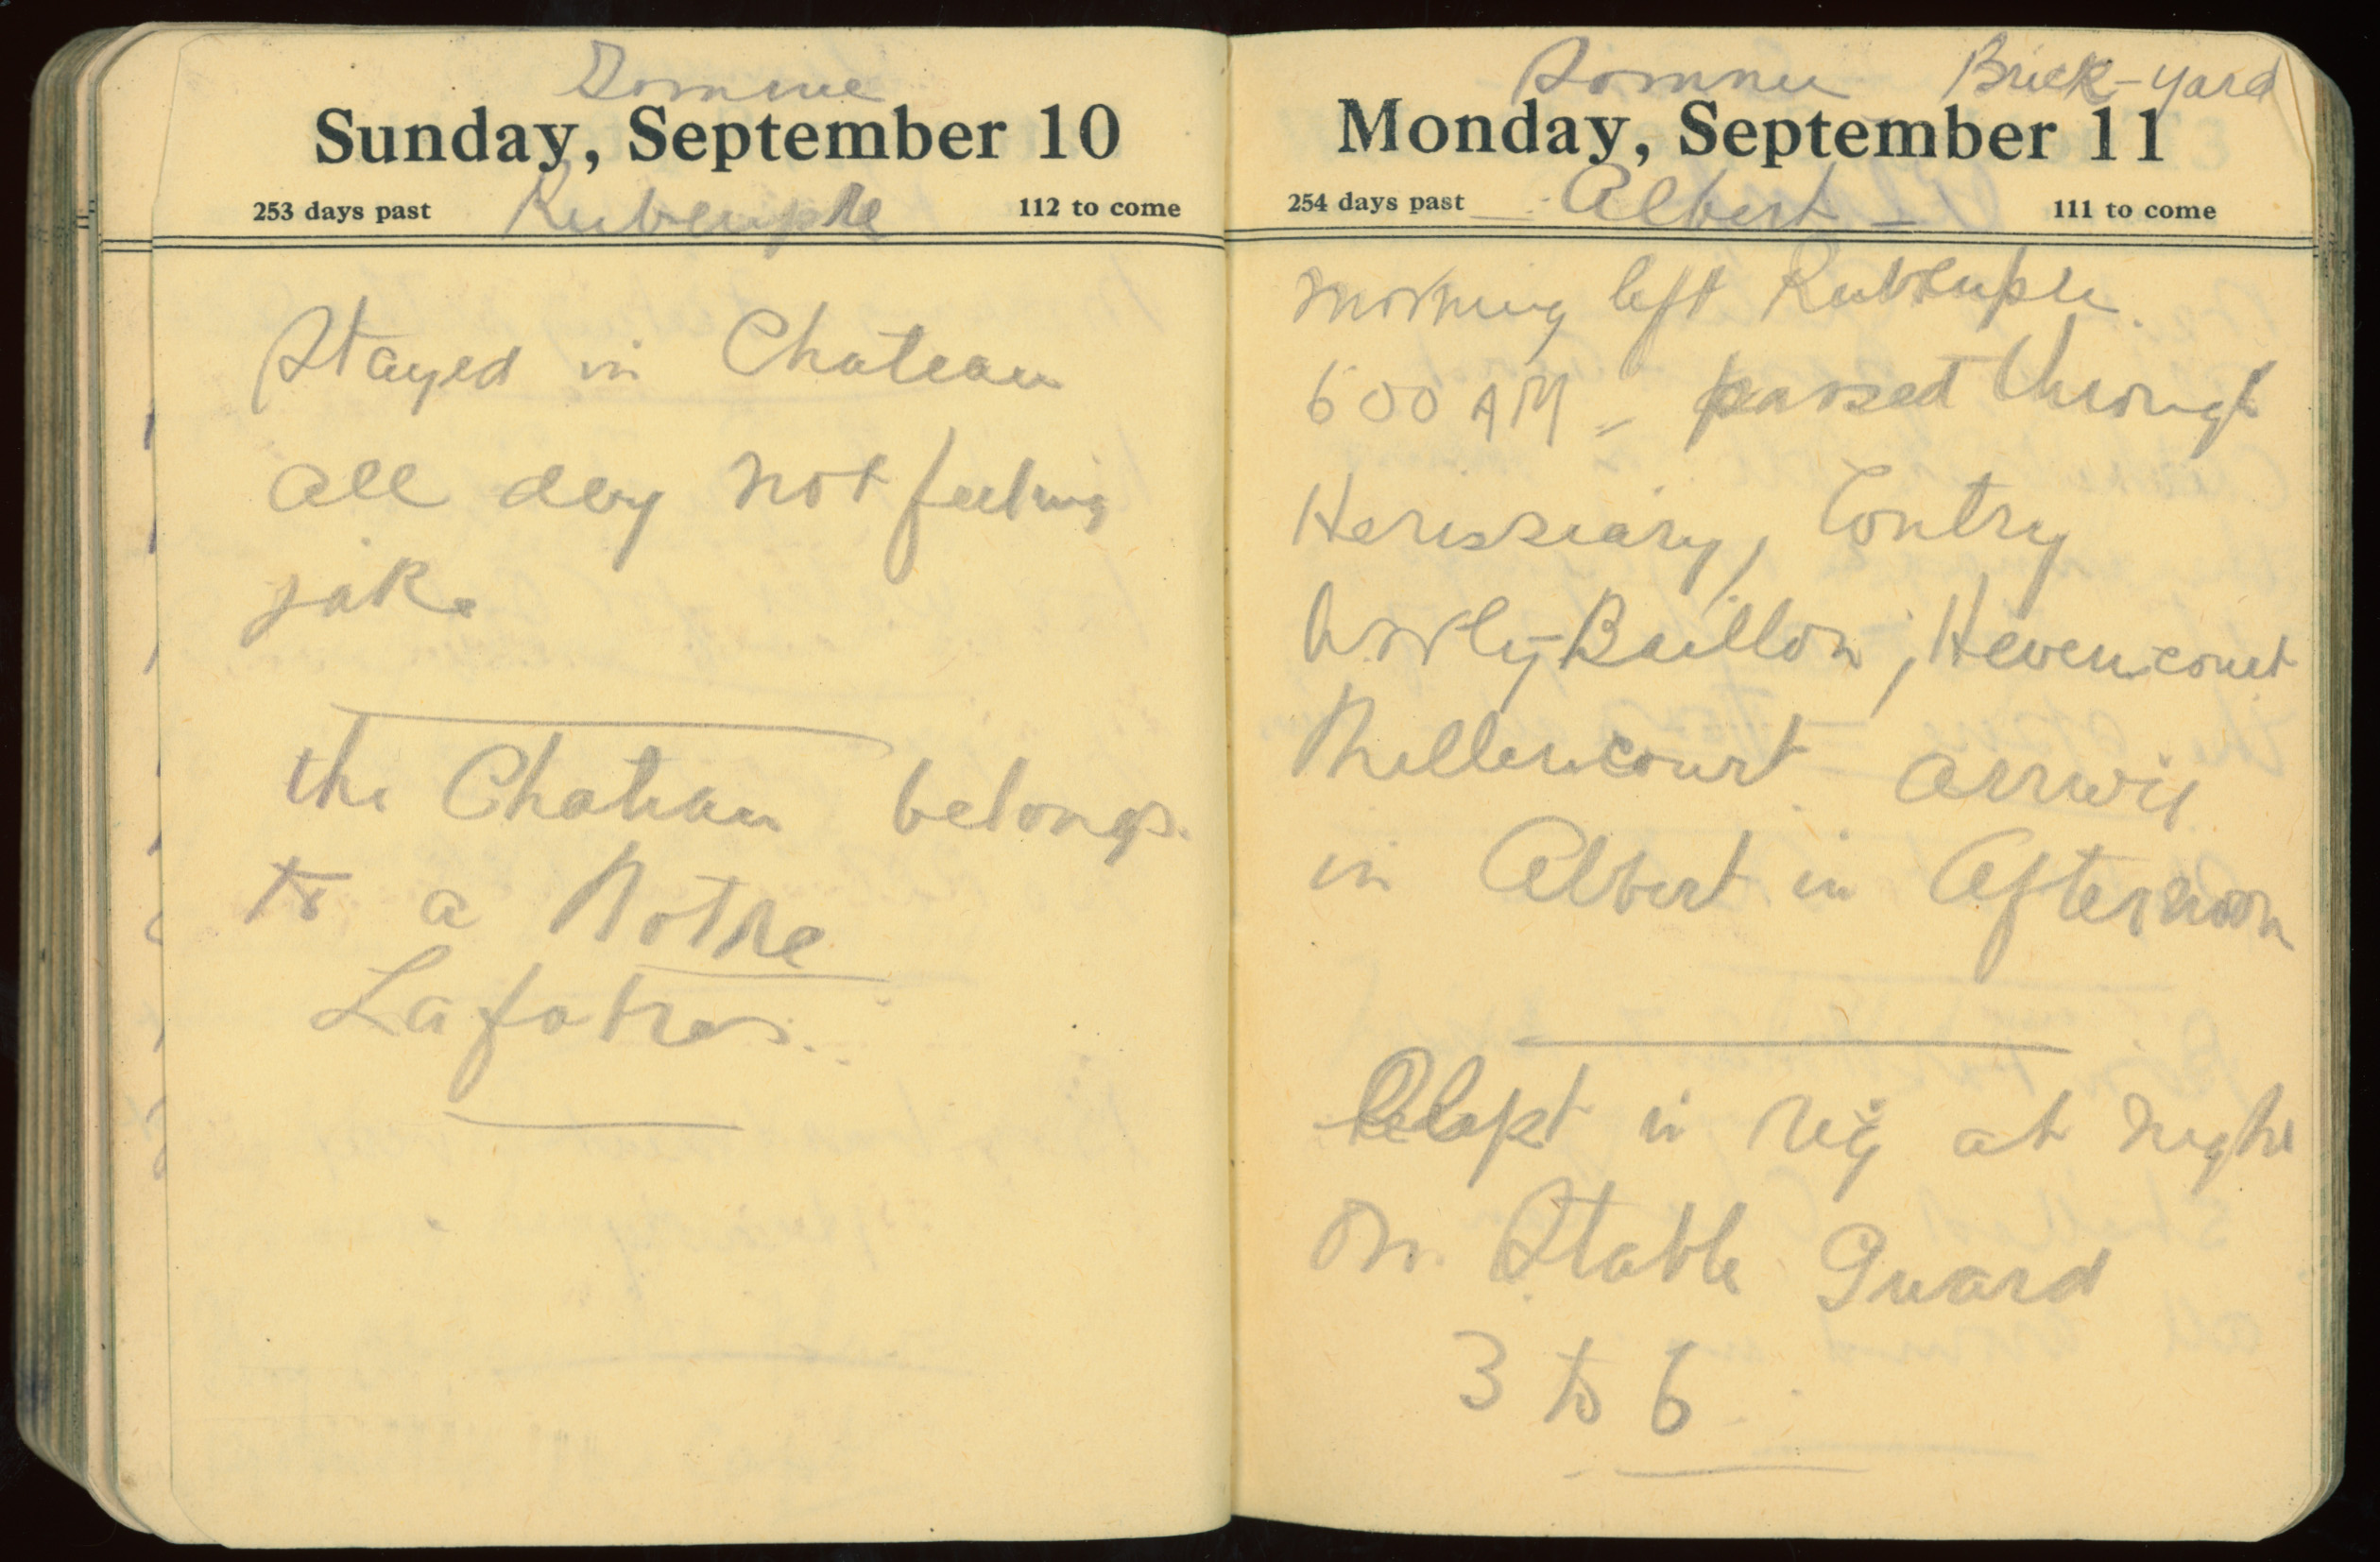 Somme
Sunday, September 10
253 days past Rubempre 112 to come
Stayed in Chateau
all day not feeling
jake
the Chateau belongs
to a Notre
Somme Brick-yard
Monday, September 11
254 days past - Albert - 111 to come
morning left Rubempre.
600 AM - passed through
Contry
Baillon, Hevencourt
Millencourt. arrived
in Albert in Afternoon
Slept in rig at night
on Stable Guard
3 to 6